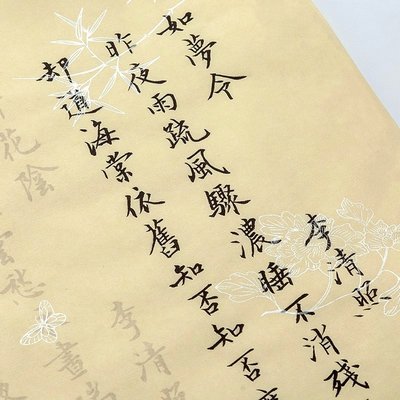 如夢令 李清照
昨夜雨疏風驟濃睡不消殘
却道海棠依舊知否知否
花陰 李清照
雲愁
晝